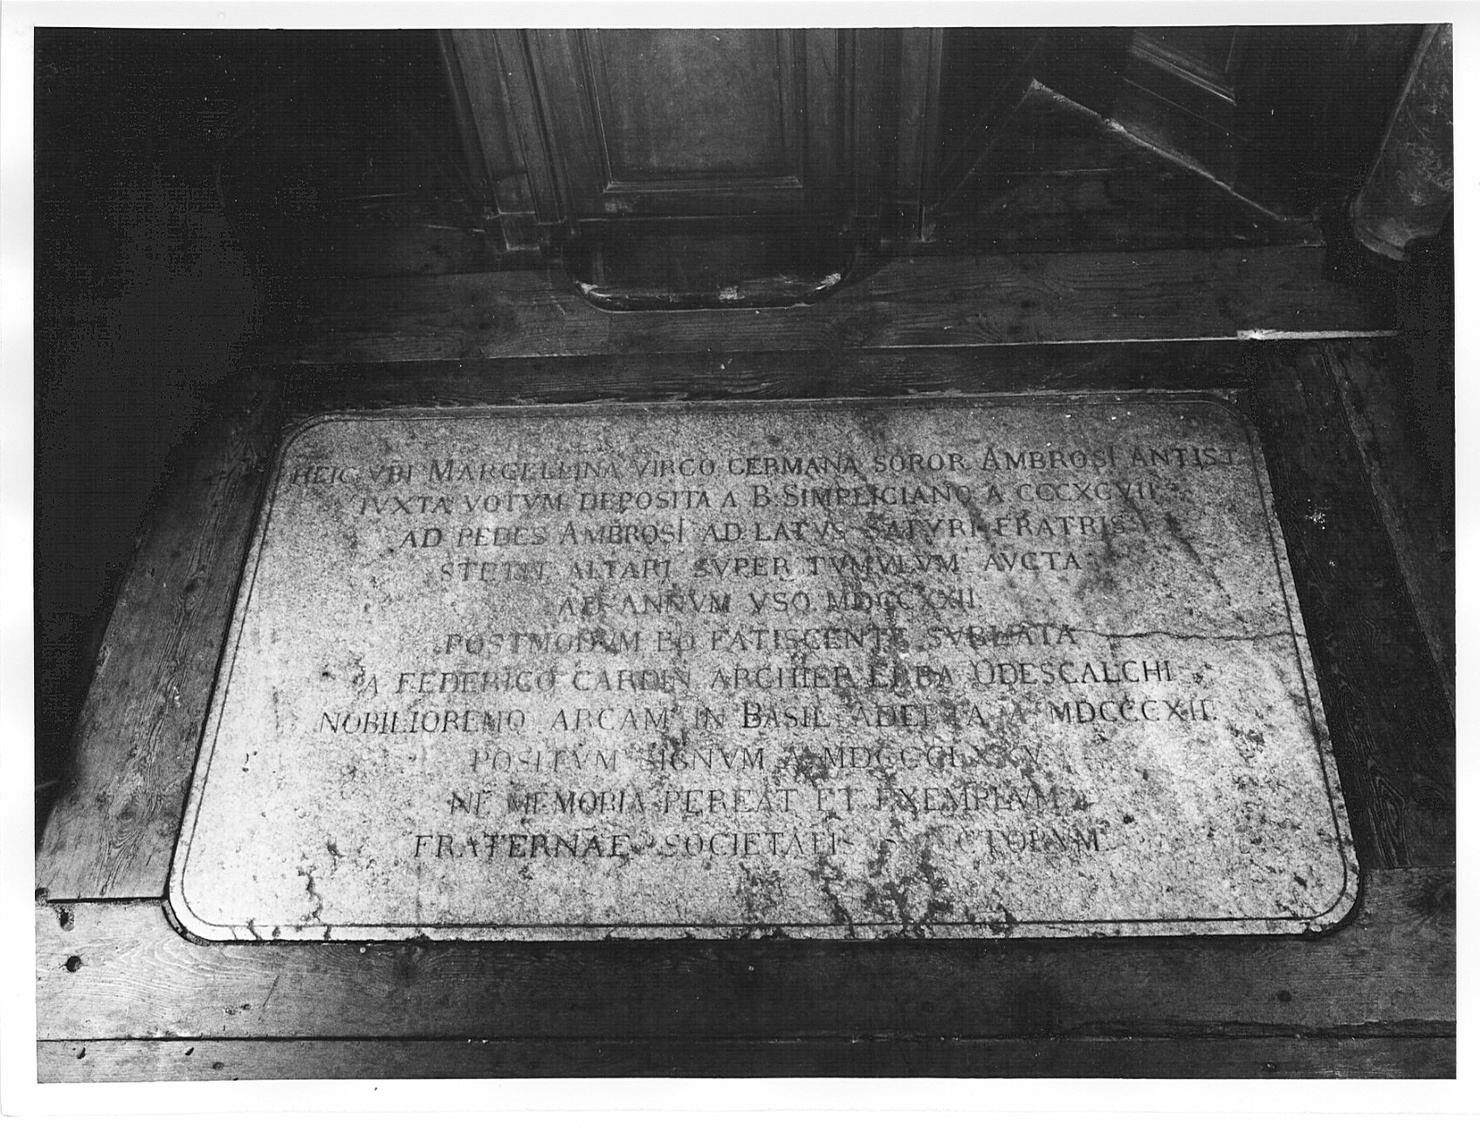 HEIC VBI MARCELLINA VIRGO GERMANA SOROR AMBROSI ANTIST
IVXTA VOTVM DEPOSITA A B. SIMPLICIANO A CCCXCVII
AD PEDES AMBROSI AD LATVS SATYRI FRATRIS
STETIT ALTARI SVPER TVMVLVM AVCTA
AD ANNVM VSQ MDCCXXII
POSTMODVM EO FATISCENTE SVBLATA
A FEDERICO CARDIN ARCHIEP ERBA ODESCALCHI
NOBILIOREMQ ARCAM IN BASIL ADEPTA A MDCCCXII.
POSITVM SIGNVM A MDCCCLXXV
NE MEMORIA PEREAT ET EXEMPLVM
FRATERNAE SOCIETATIS